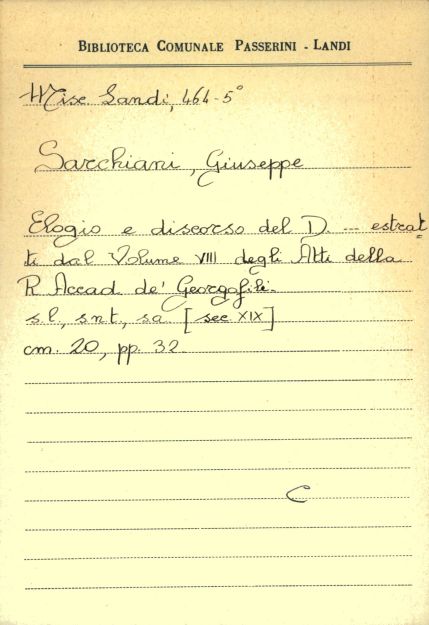 BIBLIOTECA COMUNALE PASSERINI - LANDI
Misc. Landi, 464-5°
Sarchiani, Giuseppe
Elogio e discorso del D. --- estrat=
ti dal Volume VIII degli Atti della
R. Accad. de' Georgofili.
s.l., s.n.t., s.a. [sec XIX]
cm. 20, pp. 32
C